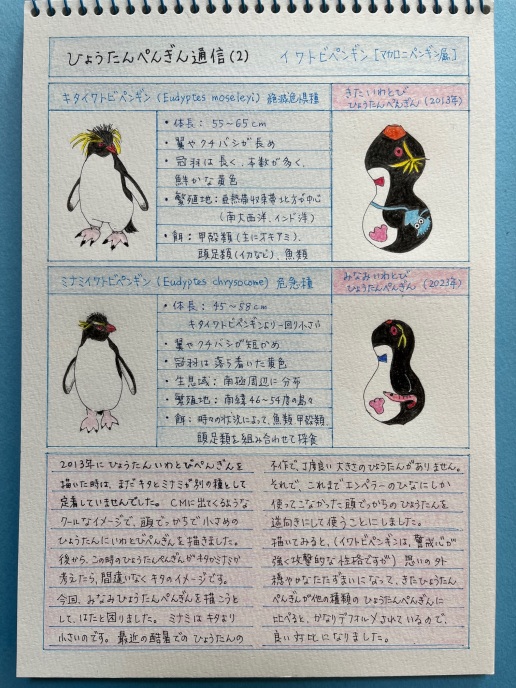 ひょうたんぺんぎん通信(2)
イワトビペンギン[マカロニペンギン属]
キタイワトビペンギン(Eudyptes moseleyi)絶滅危惧種
・体長：55～65cm
・翼やクチバシが長め
・冠羽は長く、本数が多く、
鮮かな黄色
・繁殖地：亜熱帯収束帯北方が中心
(南大西洋、インド洋)
・餌：甲殻類(主にオキアミ)、
頭足類(イカなど)、魚類
きたいわとび
ひょうたんぺんぎん(2013年)
ミナミイワトビペンギン(Eudyptes chrysocome)危急種
・体長：45～58cm
キタイワトビペンギンより一回り小さい
・翼やクチバシが短かめ
・冠羽は落ち着いた黄色
・生息域：南極周辺に分布
・繁殖地：南緯46～54度の島々
・餌：時々の状況によって、魚類、甲殻類、
頭足類を組み合わせて採食
みなみいわとび
ひょうたんぺんぎん(2023年)
2013年にひょうたんいわとびぺんぎんを
描いた時は、まだキタとミナミが別の種として
定着していませんでした。CMに出てくるような
クールなイメージで、頭でっかちで小さめの
ひょうたんにいわとびぺんぎんを描きました。
後から、この時のひょうたんぺんぎんがキタかミナミか
考えたら、間違いなくキタのイメージです。
今回、みなみひょうたんぺんぎんを描こうと
して、はたと困りました。ミナミはキタより
小さいのです。最近の酷暑でのひょうたんの
不作で、丁度良い大きさのひょうたんがありません。
それで、これまでエンペラーのひなにしか
使ってこなかった頭でっかちのひょうたんを
逆向きにして使うことにしました。
描いてみると、(イワトビペンギンは、警戒心が
強く攻撃的な性格ですが)思いの外
穏やかなたたずまいになって、きたひょうたん
ぺんぎんが他の種類のひょうたんぺんぎんに
比べると、かなりデフォルメされているので、
良い対比になりました。